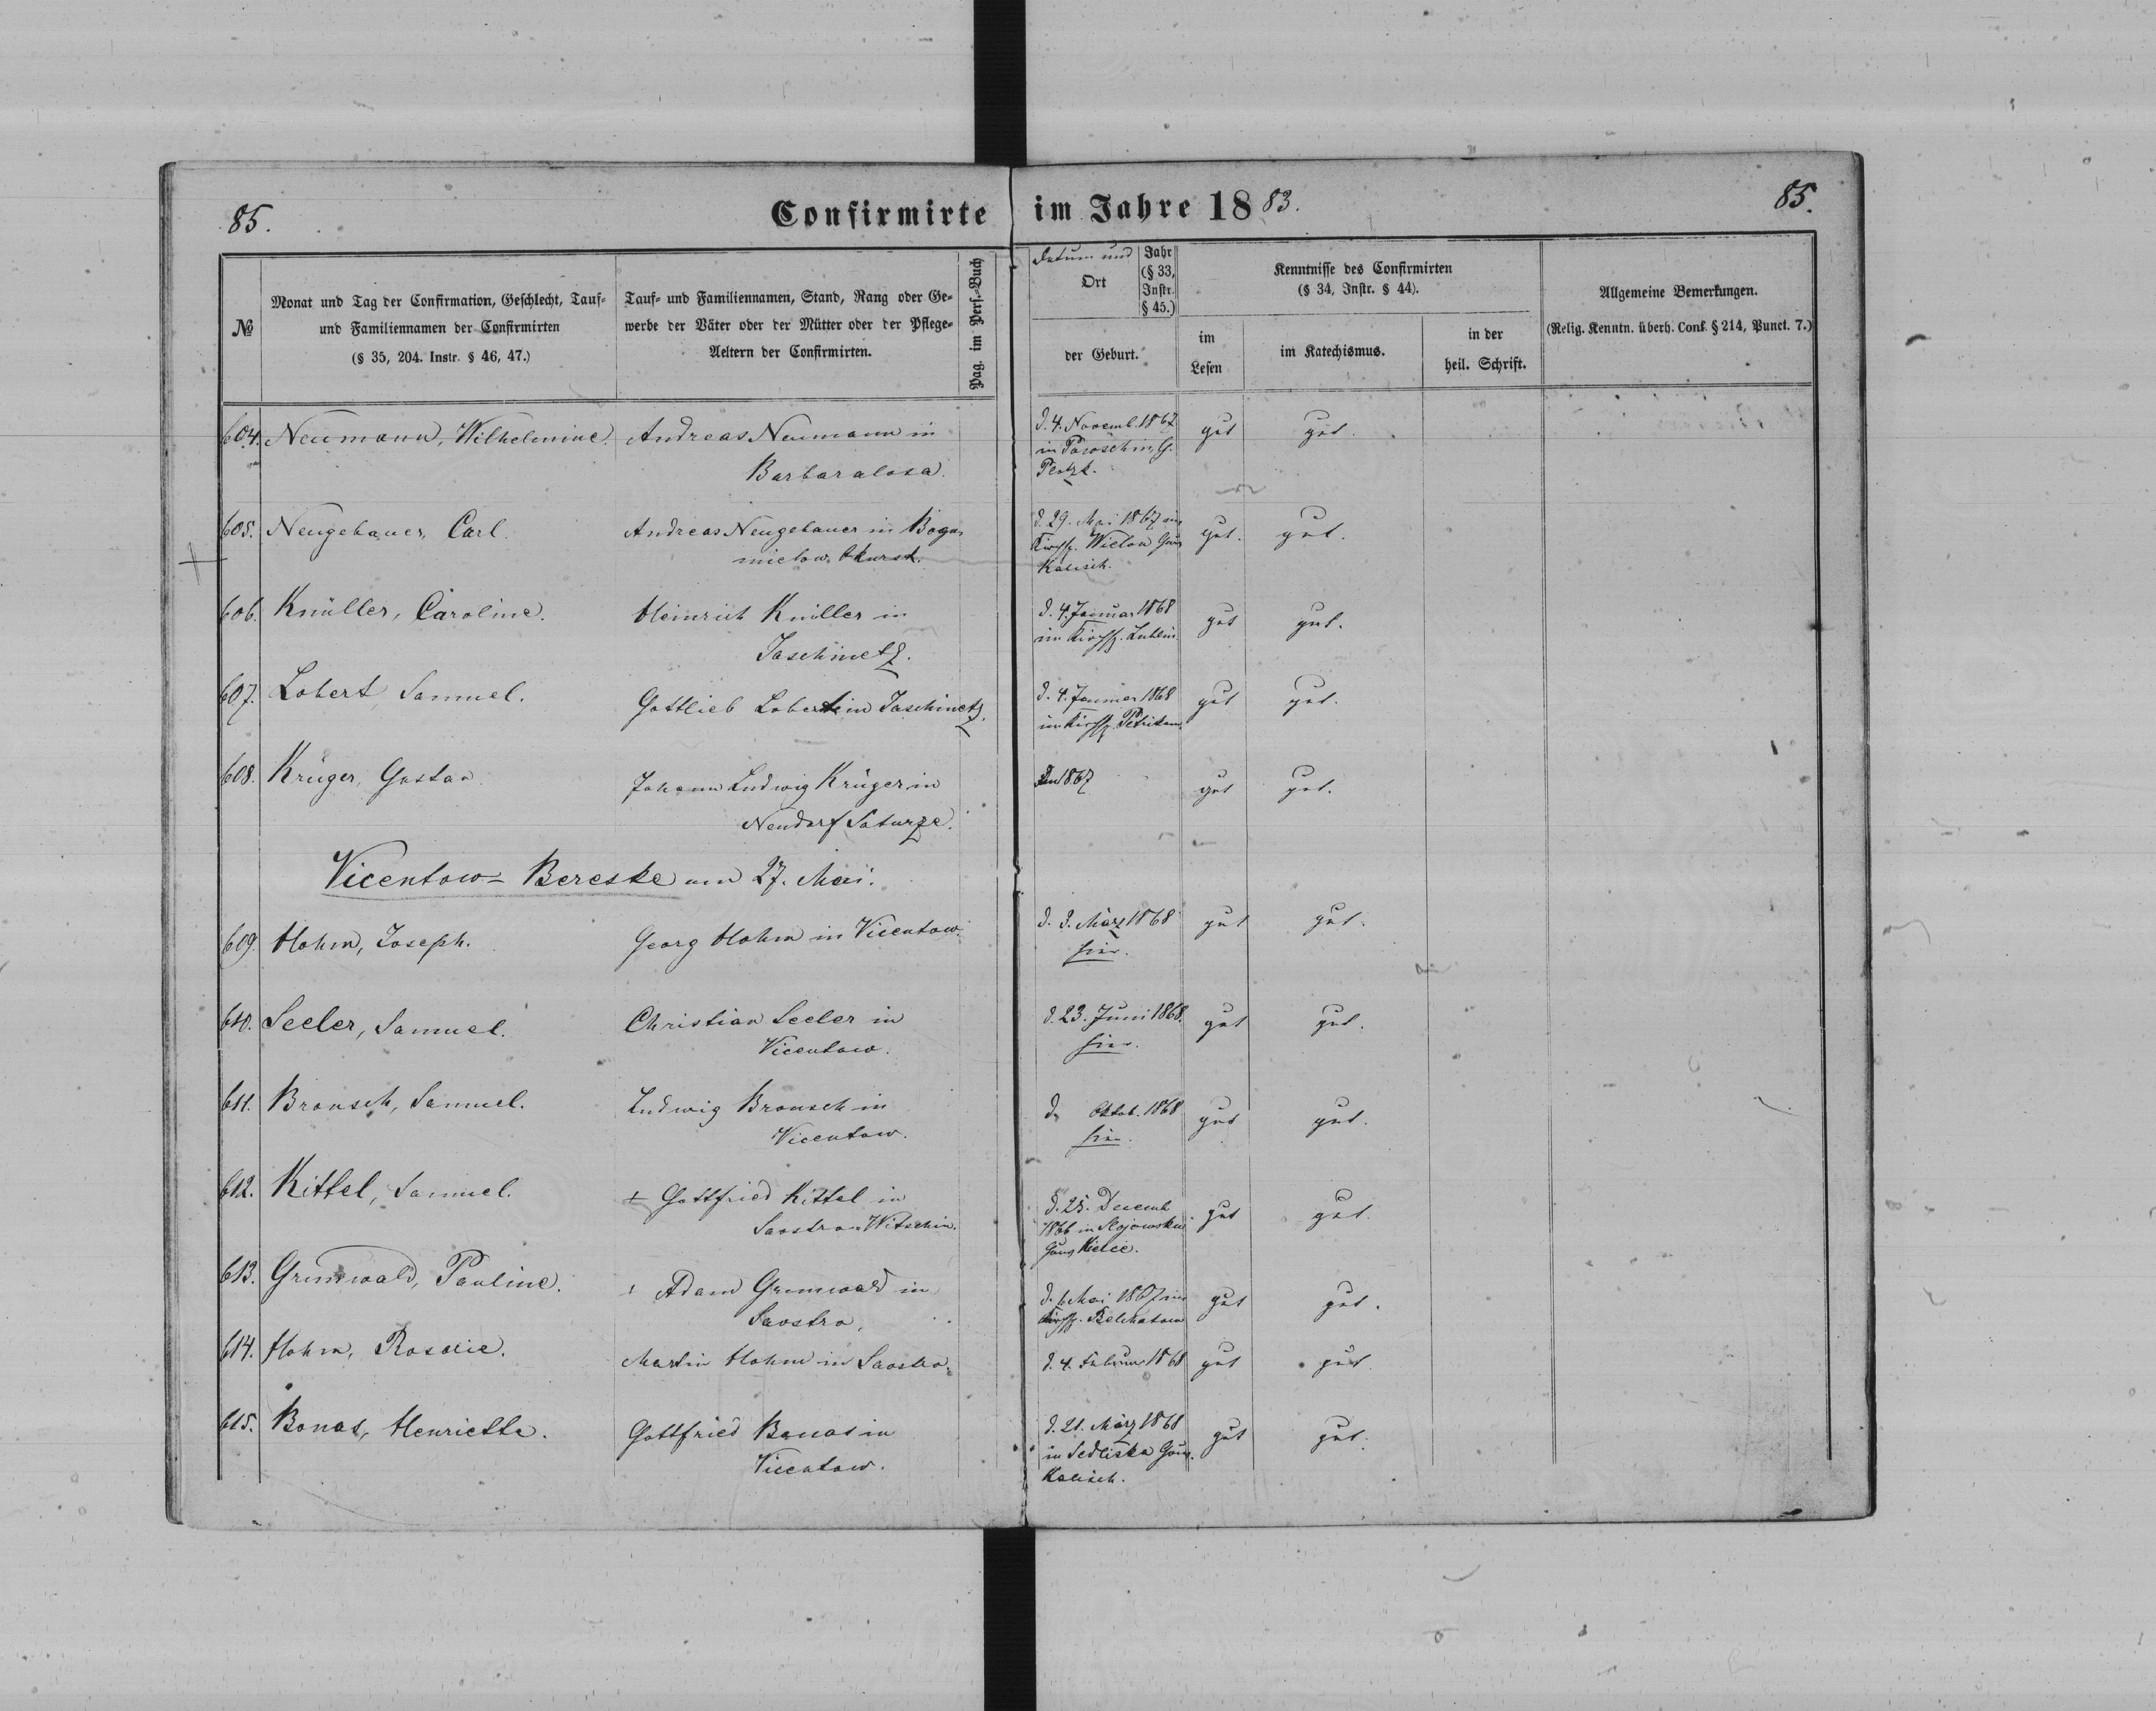 85.
Confirmirte im Jahre 1883.
85.
№
Monat und Tag der Confirmation, Geschlecht, Tauf-
und Familiennamen der Confirmirten
(§ 35, 204. Instr. § 46, 47.)
Tauf- und Familiennamen, Stand, Rang oder Ge-
werbe der Väter oder der Mütter oder der Pflege-
Aeltern der Confirmirten.
Pag. im Pers.-Buch
Datum und
Ort
Jahr
(§ 33,
Instr.
§ 45.)
der Geburt.
Kenntnisse des Confirmirten
(§ 34, Instr. § 44).
im
Lesen
im Katechismus.
in der
heil. Schrift.
Allgemeine Bemerkungen.
(Relig. Kenntn. überh. Conf. § 214, Punct. 7.)
604. Neumann, Wilhelmine. Andreas Neumann in
Barbaralosa.
d. 4. Novemb. 1867
in G.
Plotzk.
gut gut.
605. Neugebauer, Carl. Andreas Neugebauer in
d. 29. Mai 1867 im
Kirchsp. Wielun Gouv
Kalisch.
gut. gut.
606. Knüller, Caroline. Heinrich Knüller in
Jaschinetz.
d. 4. Januar 1868
im Kirchsp. Lublin
gut gut.
607. Lobert, Samuel. Gottlieb Lobert in Jaschinetz.
d. 4. Januar 1868
im Kirchsp. Petrikau.
gut gut.
608. Krüger, Gustav Johann Ludwig Krüger in
Neudorf Saturze.
1867
gut gut.
Vicentow-Bereske am 27. Mai.
609. Hohm, Joseph. Georg Hohm in Vicentow.
d. 3. März 1868
hier.
gut gut.
610. Seeler, Samuel. Christian Seeler in
Vicentow.
d. 23. Juni 1868.
hier.
gut gut.
611. Bronsch, Samuel. Ludwig Bronsch in
Vicentow.
d. Oktob. 1868
hier.
gut gut.
612. Kittel, Samuel. + Gottfried Kittel in
Saostro-Witschin.
d. 25. Decemb
1866 in
Gouv Kielce.
gut gut.
613. Grunwald, Pauline. + Adam Grunwald in
Saostro.
d. 6. Mai 1867 im
Kirchsp. Belchatow
gut gut.
614. Hohm, Rosalie. Martin Hohm in Saostro.
d. 4. Februar 1868
gut gut
615. Bonas, Henriette. Gottfried Bonas in
Vicentow.
d. 21. März 1868
in Sedliska Gouv.
Kalisch.
gut gut.